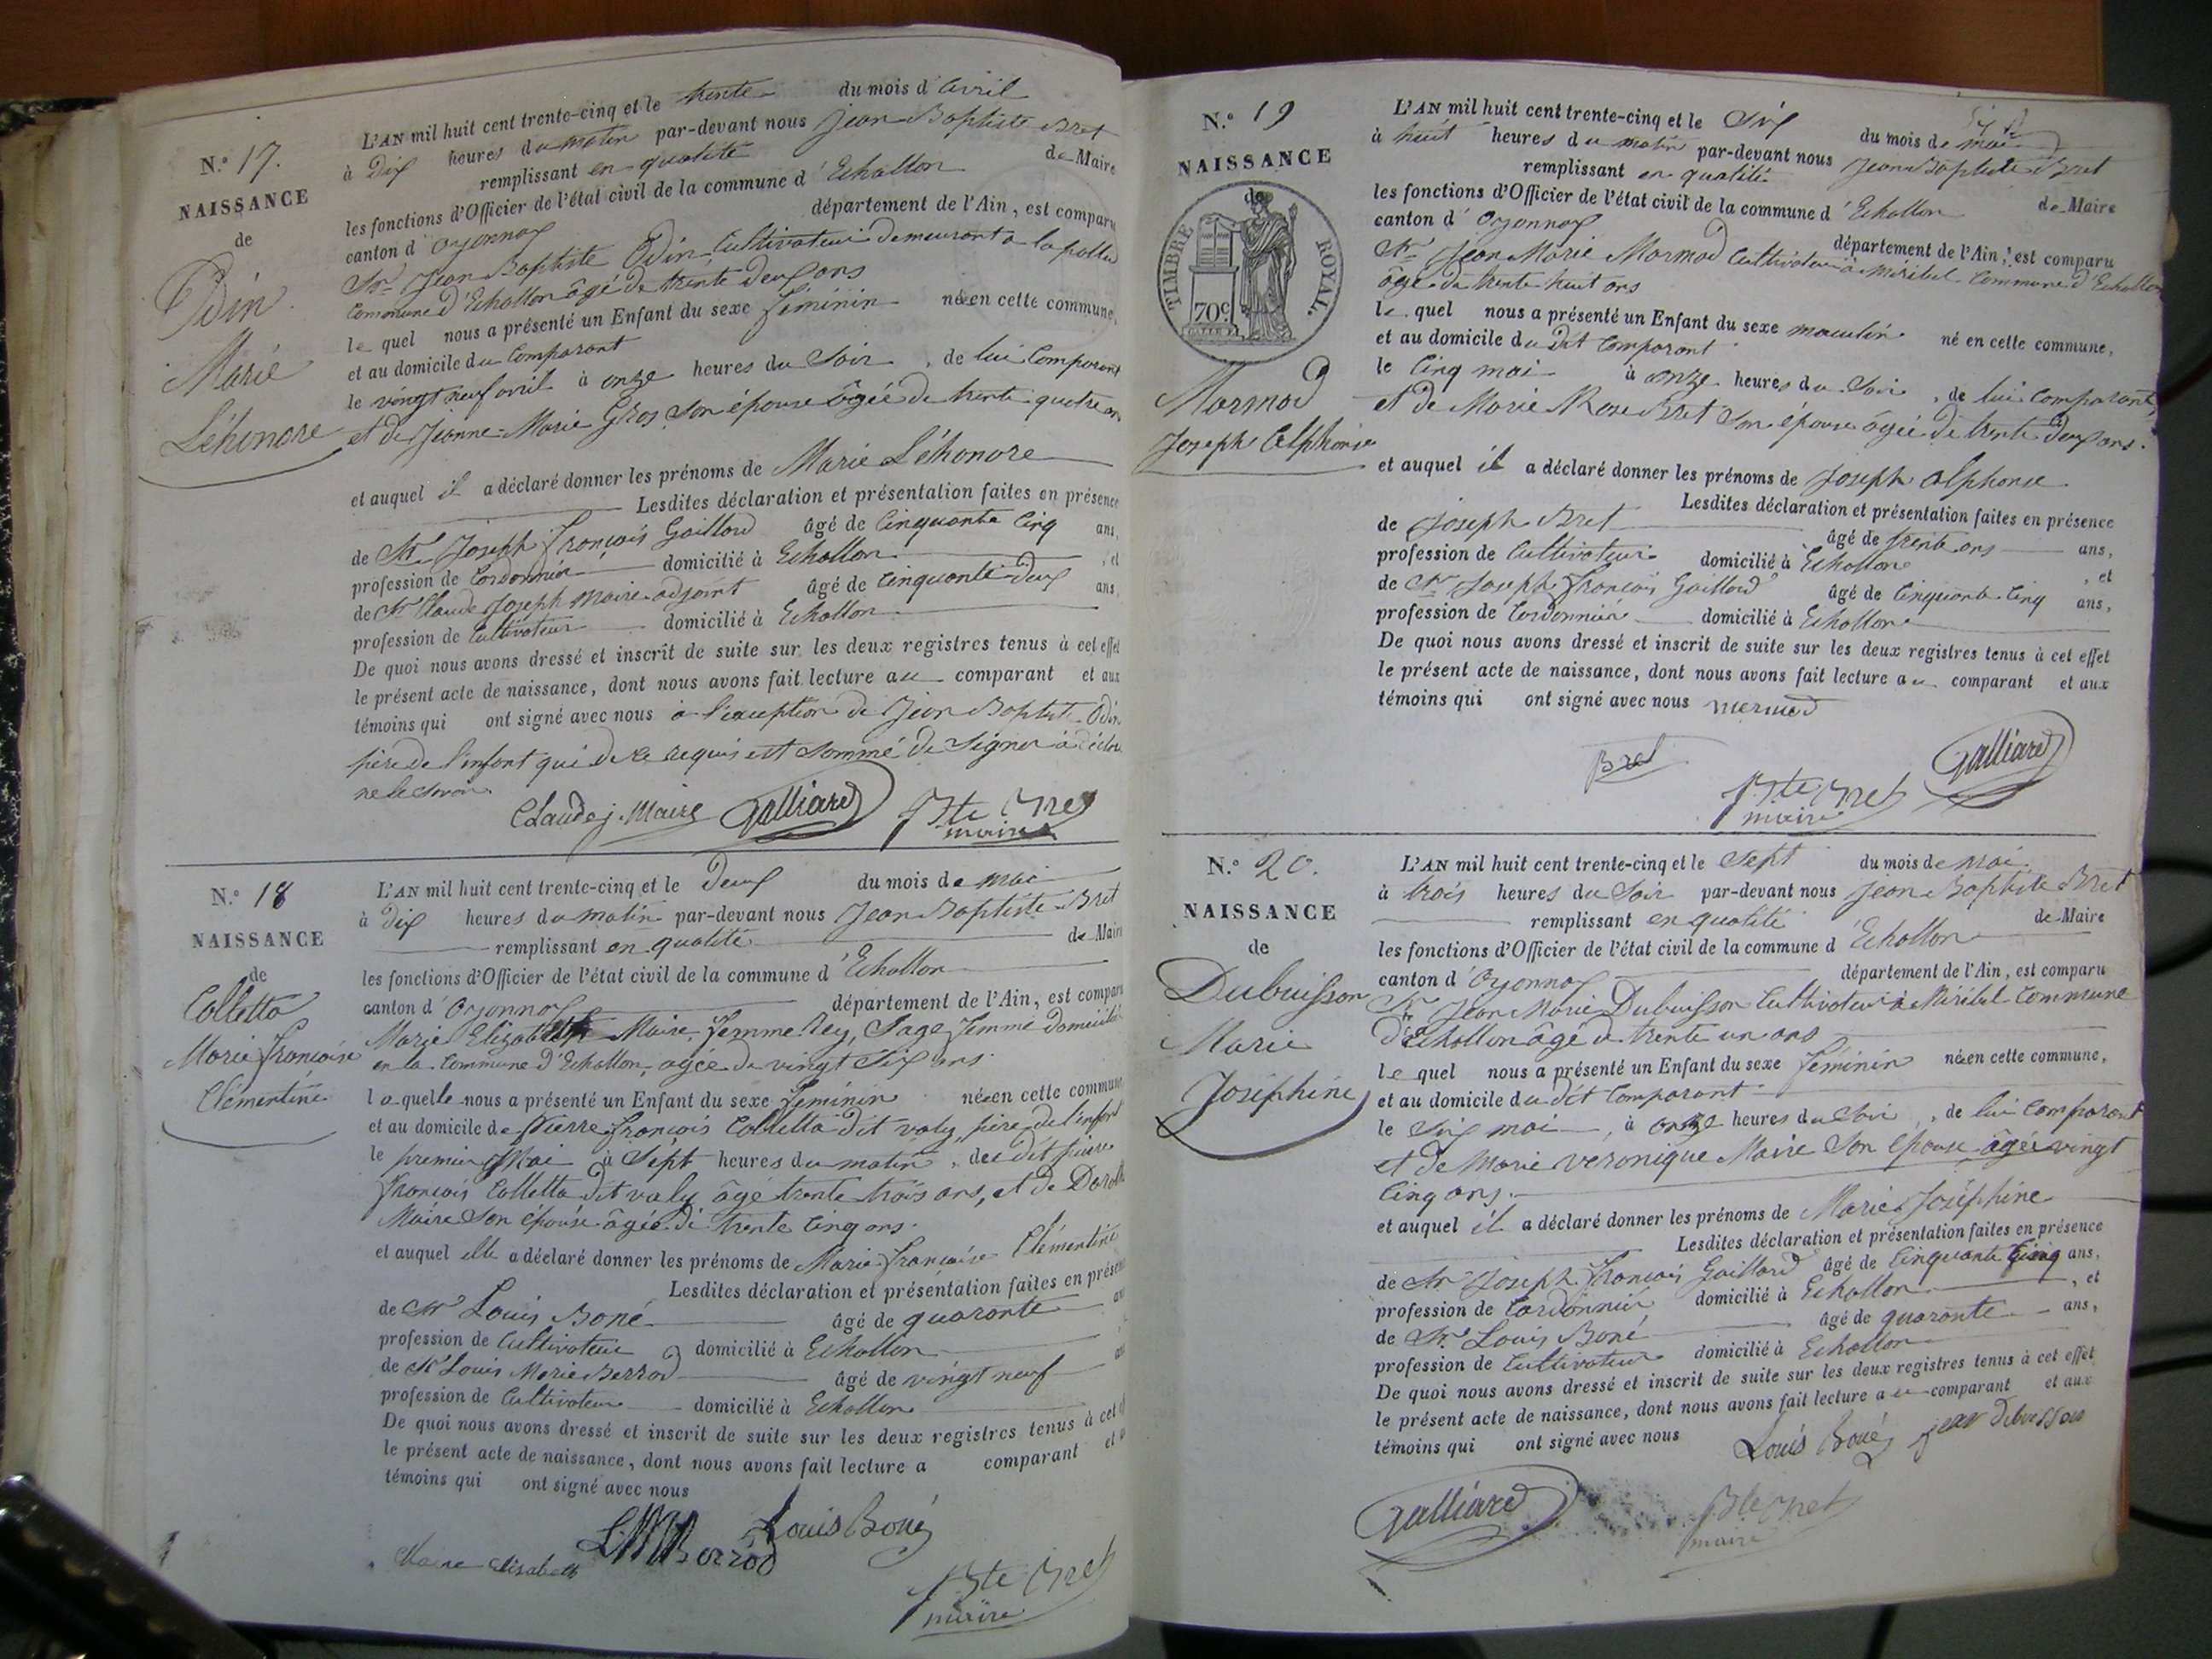 N.° 17.
NAISSANCE
de
Odin
Marie
Léhonore
L'AN mil huit cent trente-cinq et le trente du mois d'avril
à Dix heures du matin par-devant nous Jean Baptiste Bret
remplissant en qualité de Maire
les fonctions d'Officier de l'état civil de la commune d'Echallon
canton d'Oyonnax département de l'Ain, est comparu
Sr Jean Baptiste Odin Cultivateur demeurant a la
Commune d'Echallon âgé de trente deux ans
le quel nous a présenté un Enfant du sexe féminin née en cette commune,
et au domicile du Comparant
le vingt neuf avril à onze heures du Soir, de lui Comparant
et de Jeanne Marie Gros Son épouse âgée de trente quatre ans
et auquel il a déclaré donner les prénoms de Marie Léhonore
Lesdites déclaration et présentation faites en présence
de Sr Joseph François Gaillard âgé de Cinquante Cinq ans,
profession de Cordonnier domicilié à Echallon, et
de Sr Claude Joseph Maire adjoint âgé de Cinquante deux ans
profession de Cultivateur domicilié à Echallon
De quoi nous avons dressé et inscrit de suite sur les deux registres tenus à cet effet
le présent acte de naissance, dont nous avons fait lecture au comparant et aux
témoins qui ont signé avec nous a l'exception de Jean Baptiste Odin
père de l'enfant qui de ce requis et Sommé de Signer a déclaré
ne le Savoir
Claude j. Maire Galliard J Bte Bret
maire
N.° 18
NAISSANCE
de
Colletta
Marie françoise
Clémentine
L'AN mil huit cent trente-cinq et le Deux du mois de mai
à Dix heures du matin par-devant nous Jean Baptiste Bret
remplissant en qualité de Maire
les fonctions d'Officier de l'état civil de la commune d'Echallon
canton d'Oyonnax département de l'Ain, est comparu
Marie Elizabeth Maire, femme Rey, Sage femme domiciliée
en la Commune d'Echallon, agée de vingt Six ans
laquelle nous a présenté un Enfant du sexe féminin née en cette commune
et au domicile de Pierre françois Colletta dit valy, père de l'enfant
le premier Mai à Sept heures du matin, du dit pierre
françois Colletta dit valy âgé trente trois ans, et de
Maire Son épouse âgée de trente Cinq ans.
et auquel elle a déclaré donner les prénoms de Marie françoise Clémentine
Lesdites déclaration et présentation faites en présence
de Sr Louis Boné âgé de quarante ans
profession de Cultivateur domicilié à Echallon
de Sr Louis Marie Berrod âgé de vingt neuf ans
profession de Cultivateur domicilié à Echallon
De quoi nous avons dressé et inscrit de suite sur les deux registres tenus à cet
le présent acte de naissance, dont nous avons fait lecture a comparant et
témoins qui ont signé avec nous
Louis Boné
Maire Elisabeth L.M Berrod
J Bte Bret
maire
N.° 19
NAISSANCE
de
TIMBRE ROYAL.
70c
Mermod
Joseph Alphonse
L'AN mil huit cent trente-cinq et le Six du mois de mai
à huit heures du matin par-devant nous Jean Baptiste Bret
remplissant en qualité de Maire
les fonctions d'Officier de l'état civil de la commune d'Echallon
canton d'Oyonnax département de l'Ain, est comparu
Sr Jean Marie Mermod Cultivateur à Miribel Commune d'Echallon
âgé de trente huit ans
le quel nous a présenté un Enfant du sexe masculin né en cette commune,
et au domicile du Dit Comparant
le Cinq mai à onze heures du Soir, de lui Comparant,
et de Marie Rose Bret Son épouse âgée de trente deux ans.
et auquel il a déclaré donner les prénoms de Joseph alphonse
Lesdites déclaration et présentation faites en présence
de Joseph Bret âgé de trente ans ans,
profession de Cultivateur domicilié à Echallon, et
de Sr Joseph François Gaillard âgé de Cinquante Cinq ans,
profession de Cordonnier domicilié à Echallon
De quoi nous avons dressé et inscrit de suite sur les deux registres tenus à cet effet
le présent acte de naissance, dont nous avons fait lecture au comparant et aux
témoins qui ont signé avec nous mermod
Bret Galliard
J Bte Bret
maire
N.° 20.
NAISSANCE
de
Dubuisson
Marie
Joséphine
L'AN mil huit cent trente-cinq et le Sept du mois de mai
à trois heures du Soir par-devant nous Jean Baptiste Bret
remplissant en qualité de Maire
les fonctions d'Officier de l'état civil de la commune d'Echallon
canton d'Oyonnax département de l'Ain, est comparu
Sr Jean Marie Dubuisson Cultivateur à Miribel Commune
d'Echallon âgé de trente un ans
le quel nous a présenté un Enfant du sexe féminin née en cette commune,
et au domicile du dit Comparant
le Six mai, à onze heures du Soir, de lui Comparant
et de Marie veronique Maire Son épouse âgée vingt
Cinq ans.
et auquel il a déclaré donner les prénoms de Marie Joséphine
Lesdites déclaration et présentation faites en présence
de Sr Joseph François Gaillard âgé de Cinquante Cinq ans,
profession de Cordonnier domicilié à Echallon, et
de Sr Louis Boné âgé de quarante ans,
profession de Cultivateur domicilié à Echallon
De quoi nous avons dressé et inscrit de suite sur les deux registres tenus à cet effet
le présent acte de naissance, dont nous avons fait lecture au comparant et aux
témoins qui ont signé avec nous Louis Boné jean dubuisson
Galliard J Bte Bret
maire